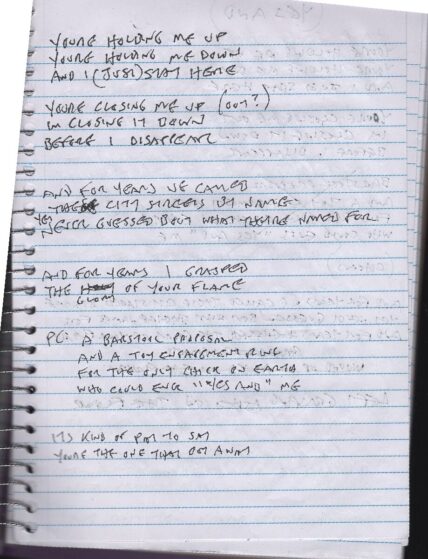 YOU'RE HOLDING ME UP
YOU'RE HOLDING ME DOWN
AND I (JUST) STAY HERE
YOU'RE CLOSING ME UP (OUT?)
I'M CLOSING IT DOWN
BEFORE I DISAPPEAR
AND FOR YEARS WE CALLED
THESE CITY STREETS BY NAME
YET
NEVER GUESSED BOUT WHAT THEY'RE NAMED FOR
AND FOR YEARS I GRASPED
THE OF YOUR FLAME
GLORY
PC: A BARSTOOL PROPOSAL
AND A TOY ENGAGEMENT RING
FOR THE ONLY CHICK ON EARTH
WHO COULD EVER "YES AND" ME
IT'S KIND OF PAT TO SAY
YOU'RE THE ONE THAT GOT AWAY